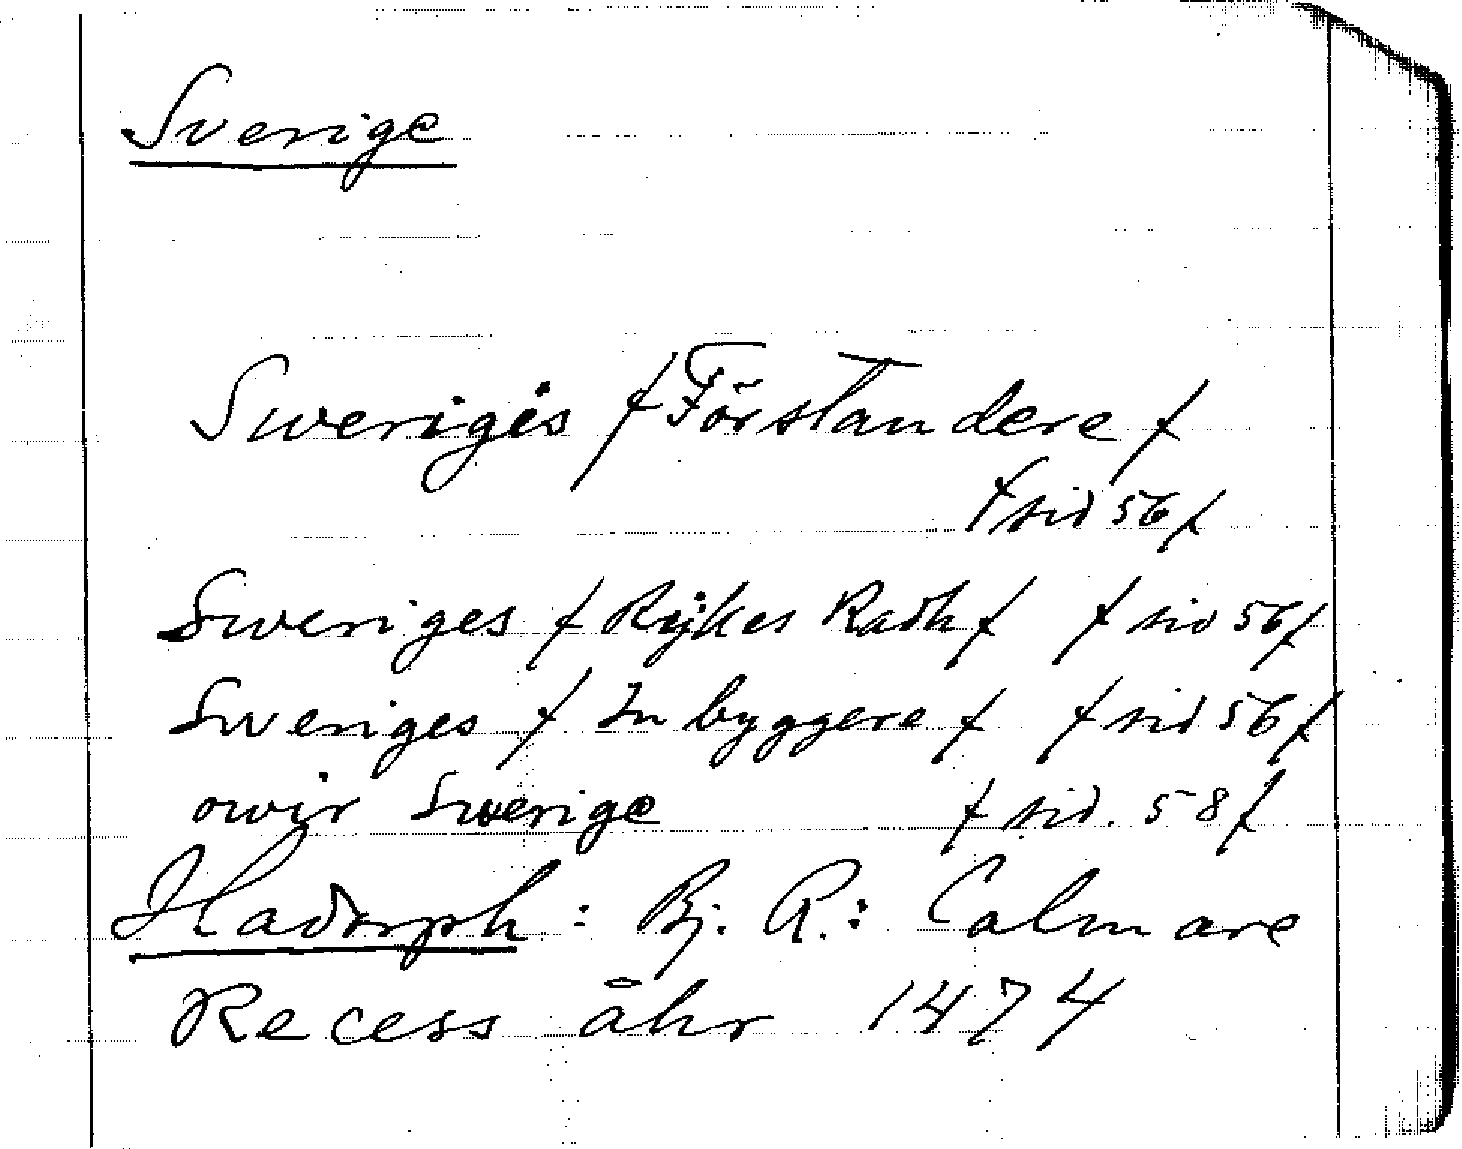 Sverige
Sweriges / Förstandere /
/ sid 56 /
Sweriges / Rijkes Radh / / sid 56 /
Sweriges / Inbyggere / / sid 56 /
owir Swerige / sid. 58 /
Hadorph : Bj. R. : Calmare
Recess åhr 1474